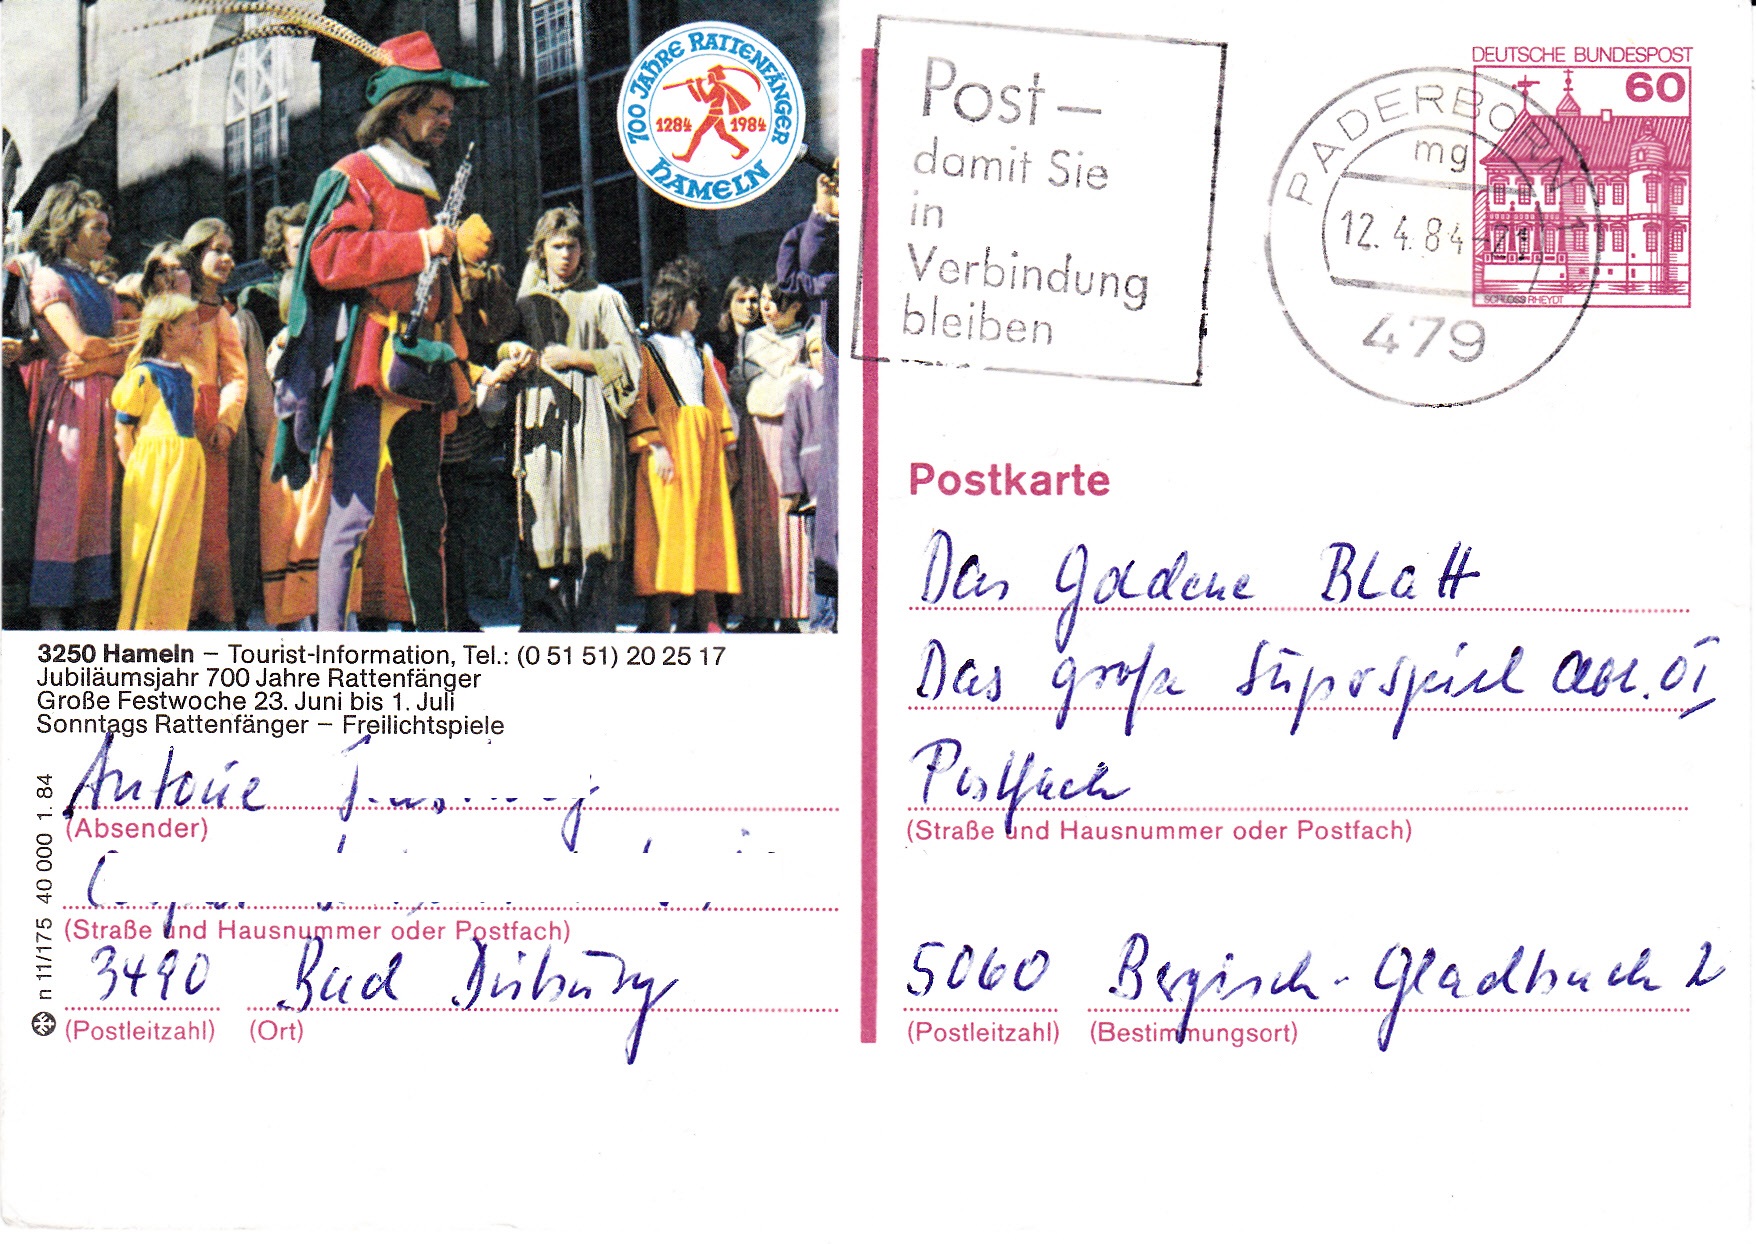 700 JAHRE RATTENFÄNGER
1284 1984
HAMELN
3250 Hameln – Tourist-Information, Tel.: (0 51 51) 20 25 17
Jubiläumsjahr 700 Jahre Rattenfänger
Große Festwoche 23. Juni bis 1. Juli
Sonntags Rattenfänger – Freilichtspiele
(Absender)
(Straße und Hausnummer oder Postfach)
3490 Bad Driburg
(Postleitzahl) (Ort)
n 11/175 40 000 1. 84
Post –
damit Sie
in
Verbindung
bleiben
PADERBORN 1
mg
12.4.84-21
479
DEUTSCHE BUNDESPOST
60
SCHLOSS RHEYDT
Postkarte
Das Goldene Blatt
Das große Superspiel
Postfach
(Straße und Hausnummer oder Postfach)
5060 Bergisch-Gladbach 2
(Postleitzahl) (Bestimmungsort)